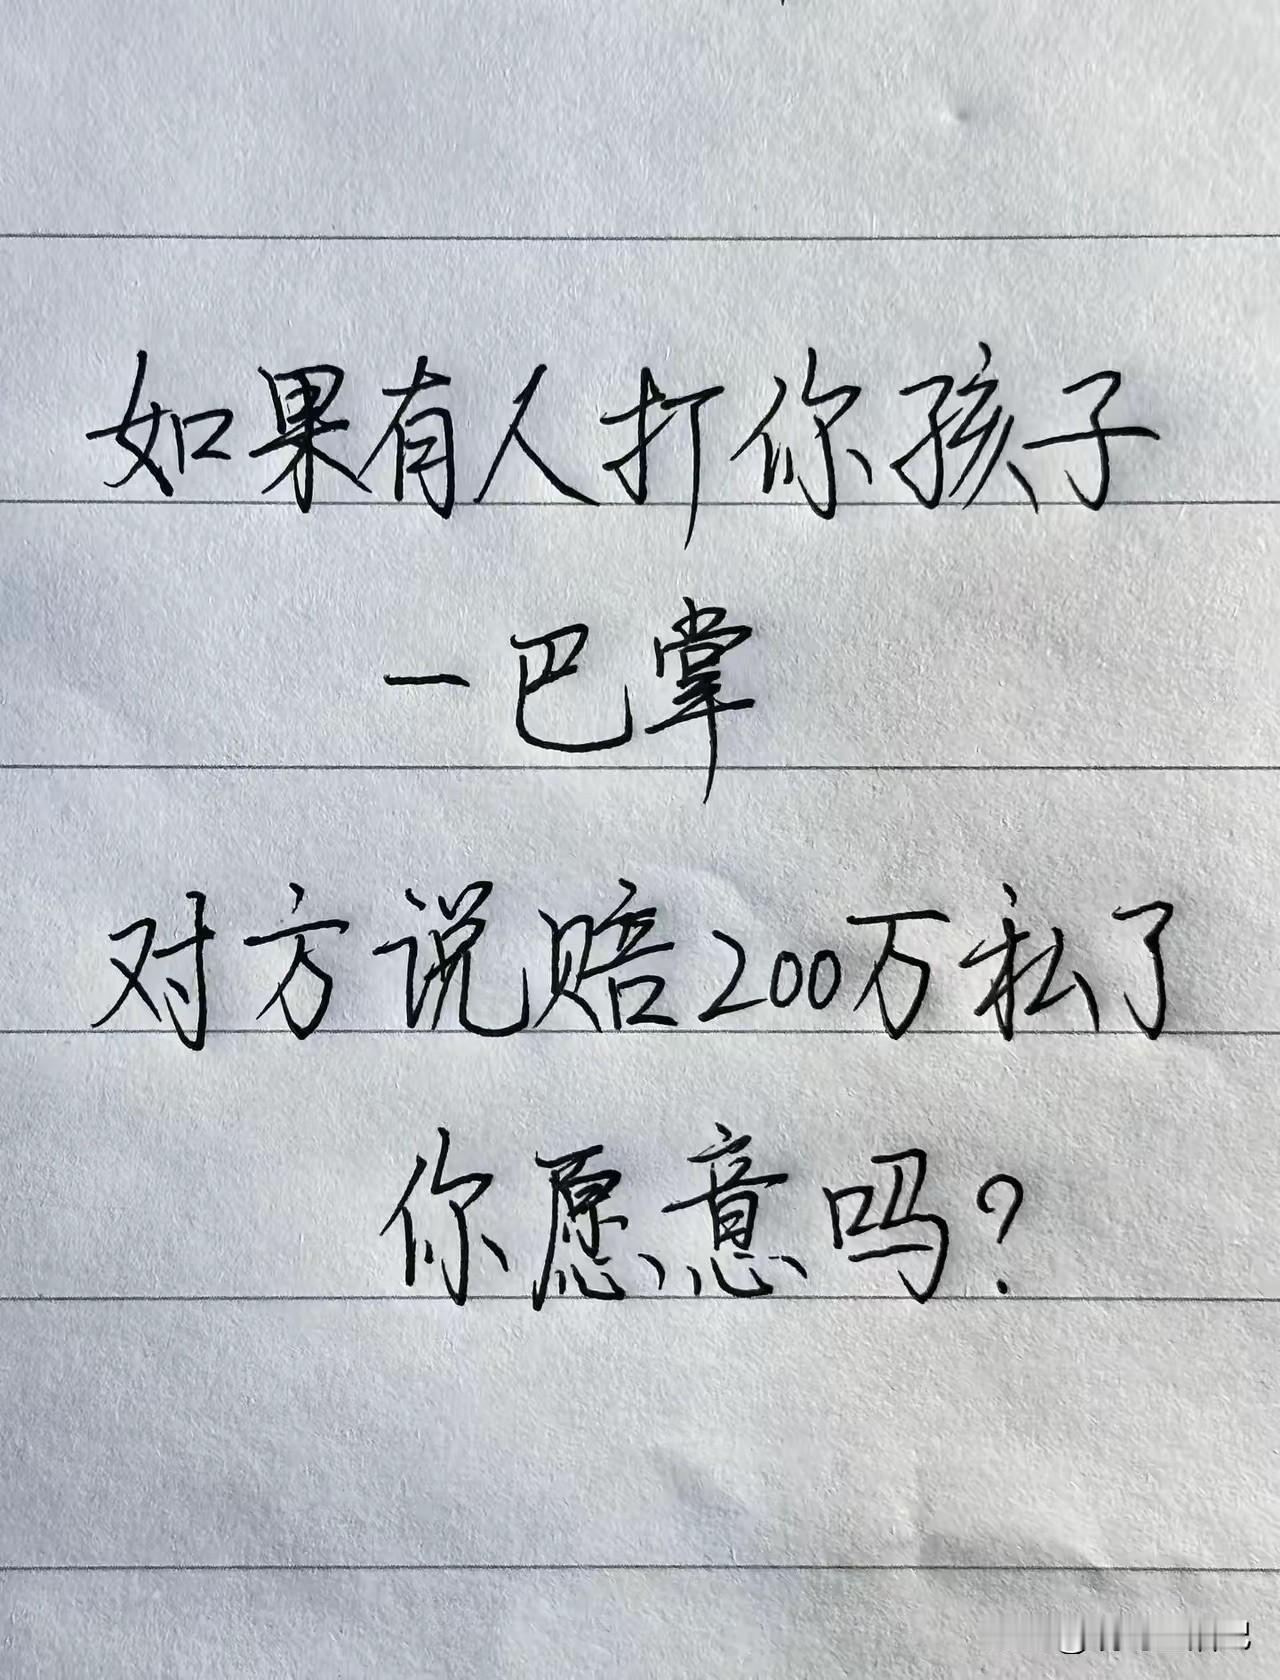 如果有人打你孩子
一巴掌
对方说赔200万私了
你愿意吗?